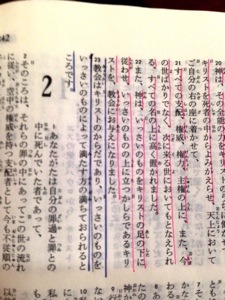 42
20 神は、その全能の力を
キリストを死者の中からよみがえらせ、天上において
ご自分の右の座に着かせて、
21 すべての支配、権威、権力、主権の上に、また、今
の世ばかりでなく、次に来る世においてもとなえられ
る、すべての名の上に高く置かれました。
22 また、神は、いっさいのものをキリストの足の下に
従わせ、いっさいのものの上に立つかしらであるキリ
ストを、教会にお与えになりました。
23 教会はキリストのからだであり、いっさいのものを
いっさいのものによって満たす方の満ちておられると
ころです。
2
あなたがたは自分の罪過と罪との
中に死んでいた者であって、
2 そのころは、それらの罪の中にあってこの世の流れ
に従い、空中の権威を持つ支配者として今も不従順の